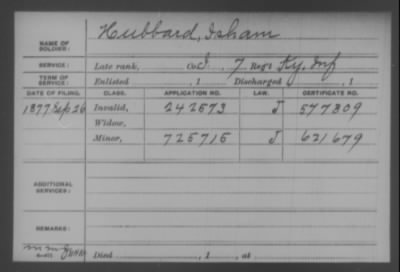 Hubbard, Isham
NAME OF SOLDIER:
SERVICE: Late rank, Co. I, 7 Reg't Ky. Inf
TERM OF SERVICE: Enlisted , 1 Discharged , 1
DATE OF FILING. CLASS. APPLICATION NO. LAW. CERTIFICATE NO.
1877 Sep 26 Invalid, 242573 J 577809
Widow,
Minor, 725715 J 621679
ADDITIONAL SERVICES:
REMARKS:
Died , 1 , at